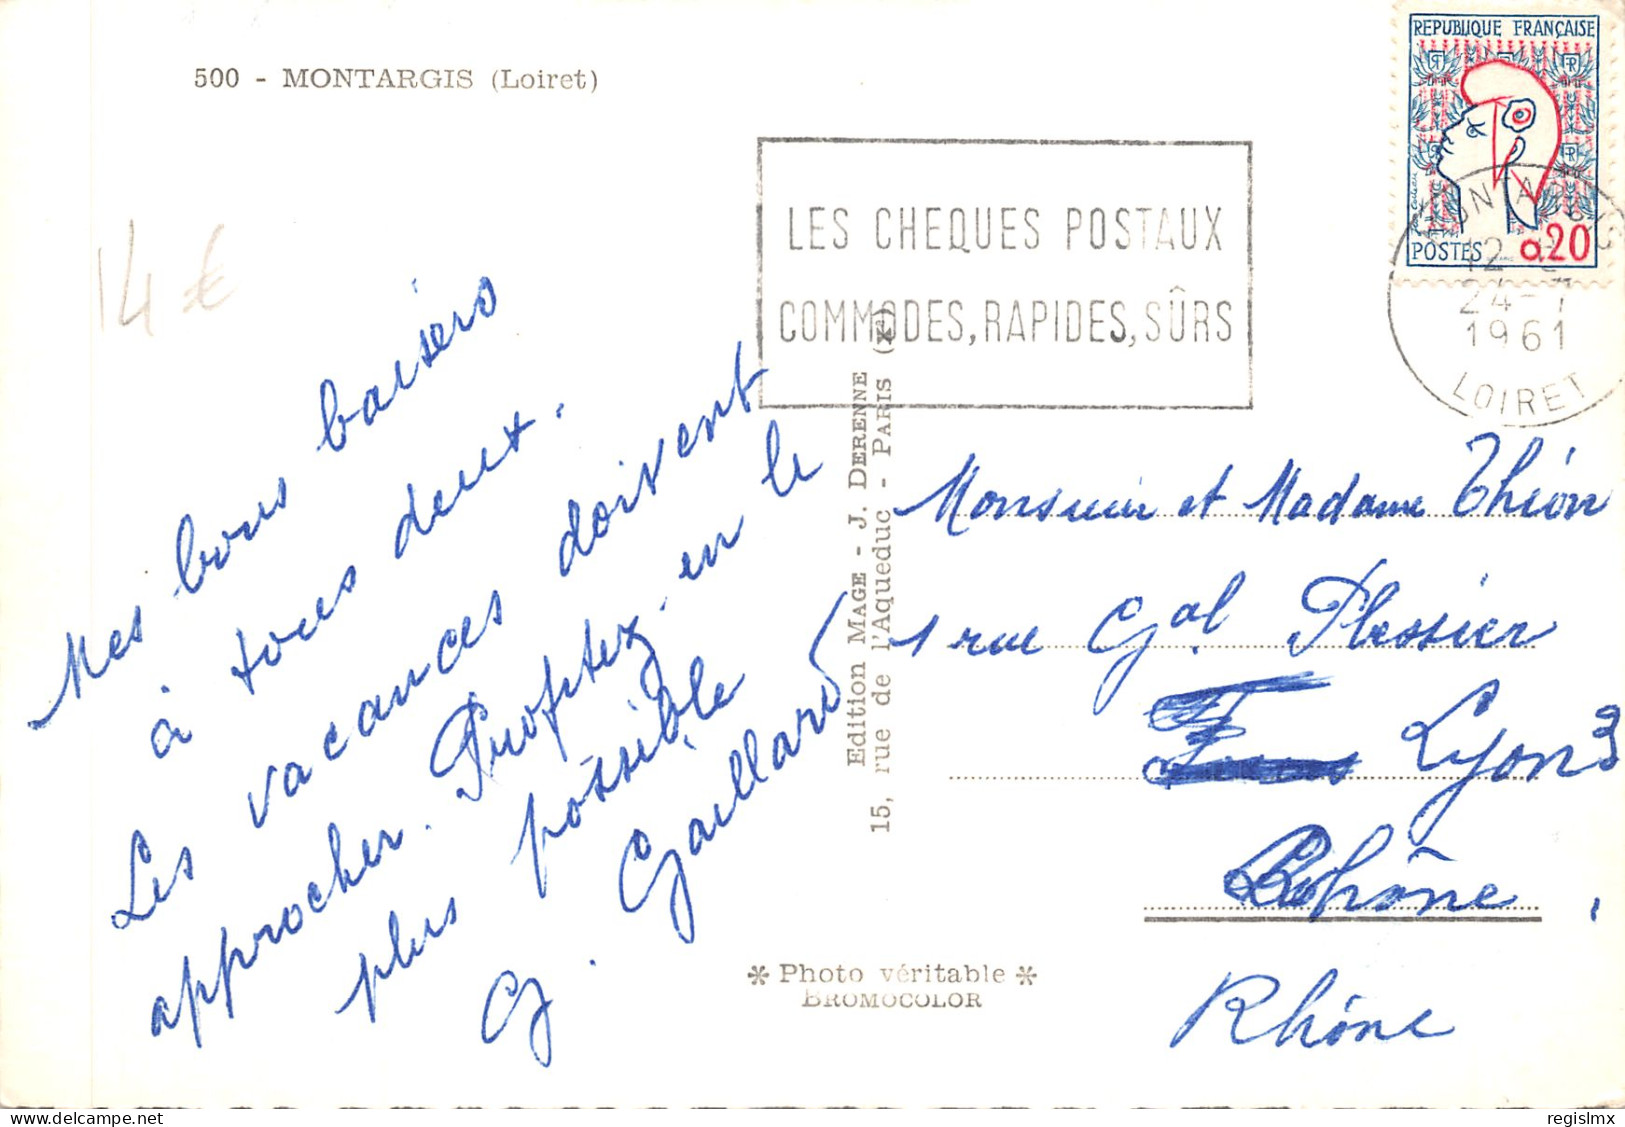 500 - MONTARGIS (Loiret)
14 €
REPUBLIQUE FRANÇAISE
POSTES 0,20
LES CHEQUES POSTAUX
COMMODES, RAPIDES, SÛRS
MONTARGIS
24-7
1961
LOIRET
Mes bons baisers
à tous deux.
Les vacances doivent
approcher. Profitez-en le
plus possible
G. Gaillard
Edition MAGE - J. DERENNE
15, rue de l'Aqueduc - PARIS (Xe)
Monsieur et Madame Thion
1 rue Gal Plessier
Lyon 3
Rhône
Rhône
* Photo véritable *
BROMOCOLOR
regislmx